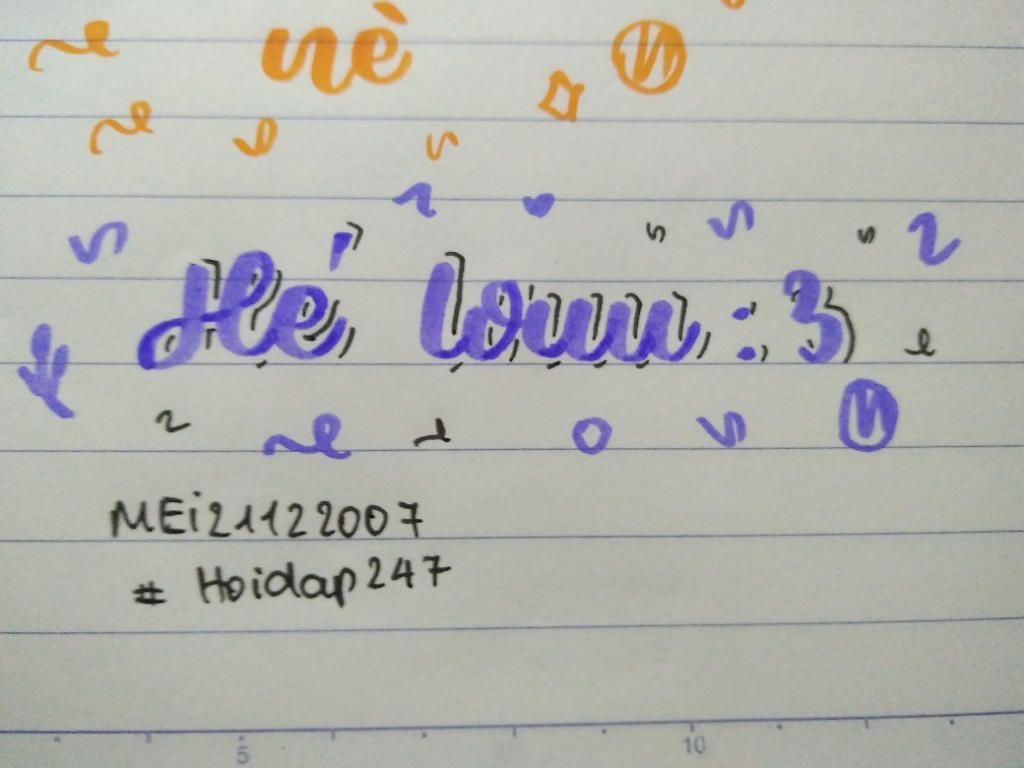 nè
Hé louuu :3
MEi21122007
# Hoidap247
5 10